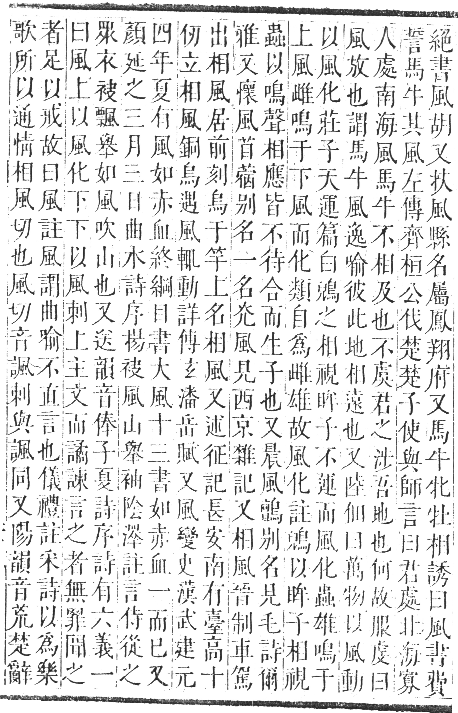 絕書風胡又扶風縣名屬鳳翔府又馬牛牝牡相誘曰風書費
誓馬牛其風左傳齊桓公伐楚楚子使與師言曰君處北海寡
人處南海風馬牛不相及也不虞君之涉吾地也何故服虔曰
風放也謂馬牛風逸喻彼此地相遠也又陸佃曰萬物以風動
以風化莊子天運篇白鶂之相視眸子不運而風化蟲雄鳴于
上風雌鳴于下風而化類自為雌雄故風化註鶂以眸子相視
蟲以鳴聲相應皆不待合而生子也又晨風鸇别名見毛詩爾
雅又懷風苜蓿别名一名光風見西京雜記又相風晉制車駕
出相風居前刻烏于竿上名相風又述征記長安南有臺高十
仞立相風銅烏遇風輒動詳傅玄潘岳賦又風變史漢武建元
四年夏有風如赤血終綱目書大風十三書如赤血一而已又
顏延之三月三日曲水詩序揚袂風山舉袖陰澤註言侍從之
衆衣被飄舉如風吹山也又送韻音俸子夏詩序詩有六義一
曰風上以風化下下以風刺上主文而譎諫言之者無罪聞之
者足以戒故曰風註風謂曲喻不直言也儀禮註采詩以為樂
歌所以通情相風切也風切音諷刺與諷同又陽韻音荒楚辭